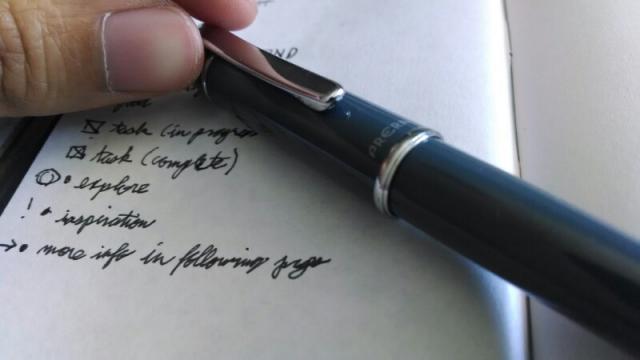 task (in progress
task (complete)
explore
! • inspiration
→ • more info in following page